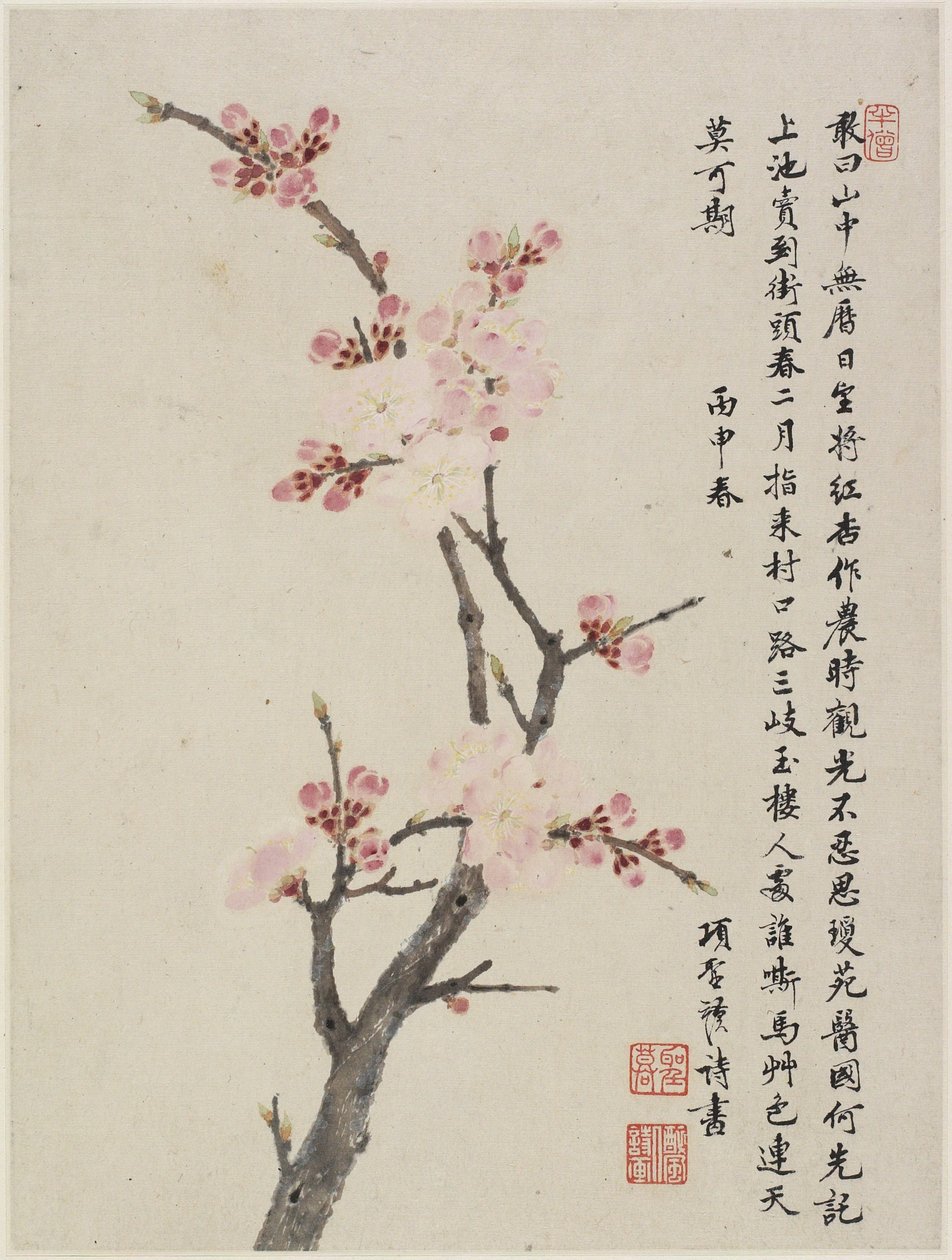 半僧
敢曰山中無曆日空將紅杏作農時觀光不忍思瓊苑醫國何先託
上池賣到街頭春二月指来村口路三岐玉樓人處誰嘶馬艸色連天
莫可期 丙申春 項聖謨詩書
聖謩